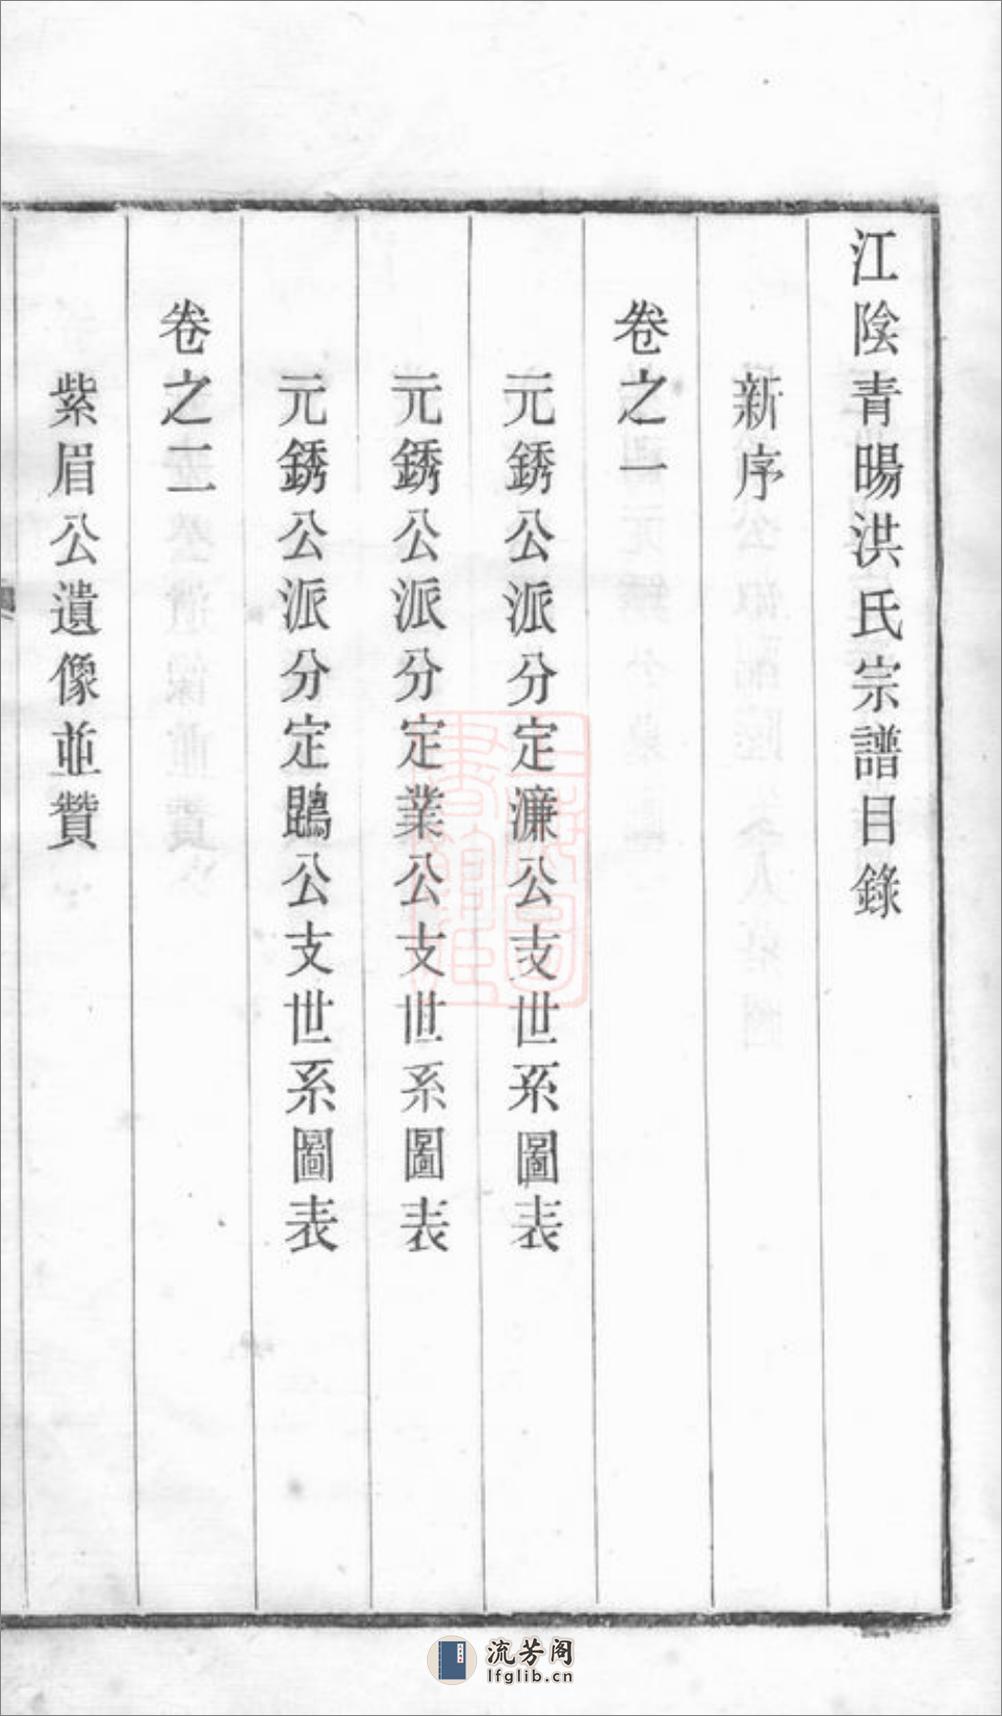 江陰青暘洪氏宗譜目錄
新序
卷之一
元銹公派分定濂公支世系圖表
元銹公派分定業公支世系圖表
元銹公派分定鵾公支世系圖表
卷之二
紫眉公遺像並贊
流芳阁
lfglib.cn